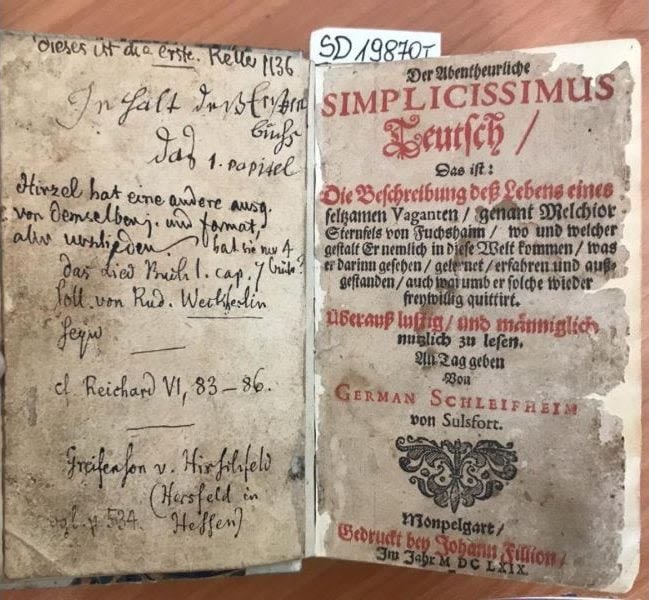 dieses ist die erste. Keller 1136
Inhalt deß Ersten
buchs
das 1. capitel
Hirzel hat eine andere ausg.
von demselben j. und format,
aber verschieden
hat sie nur 4
das Lied Buch 1. cap. 7
soll von Rud. Weckherlin
seyn
cf. Reichard VI, 83–86.
Greifenson v. Hirschfeld
(Hersfeld in
vgl. p. 534. Hessen)
SD 19870
Der Abentheurliche
SIMPLICISSIMUS
Teutsch /
Das ist:
Die Beschreibung deß Lebens eines
seltzamen Vaganten / genant Melchior
Sternfels von Fuchshaim / wo und welcher
gestalt Er nemlich in diese Welt kommen / was
er darinn gesehen / gelernet / erfahren und auß-
gestanden / auch warumb er solche wieder
freywillig quittirt.
Überauß lustig / und männiglich
nutzlich zu lesen.
An Tag geben
Von
GERMAN SCHLEIFHEIM
von Sulsfort.
Monpelgart /
Gedruckt bey Johann Fillion /
Im Jahr M DC LXIX.